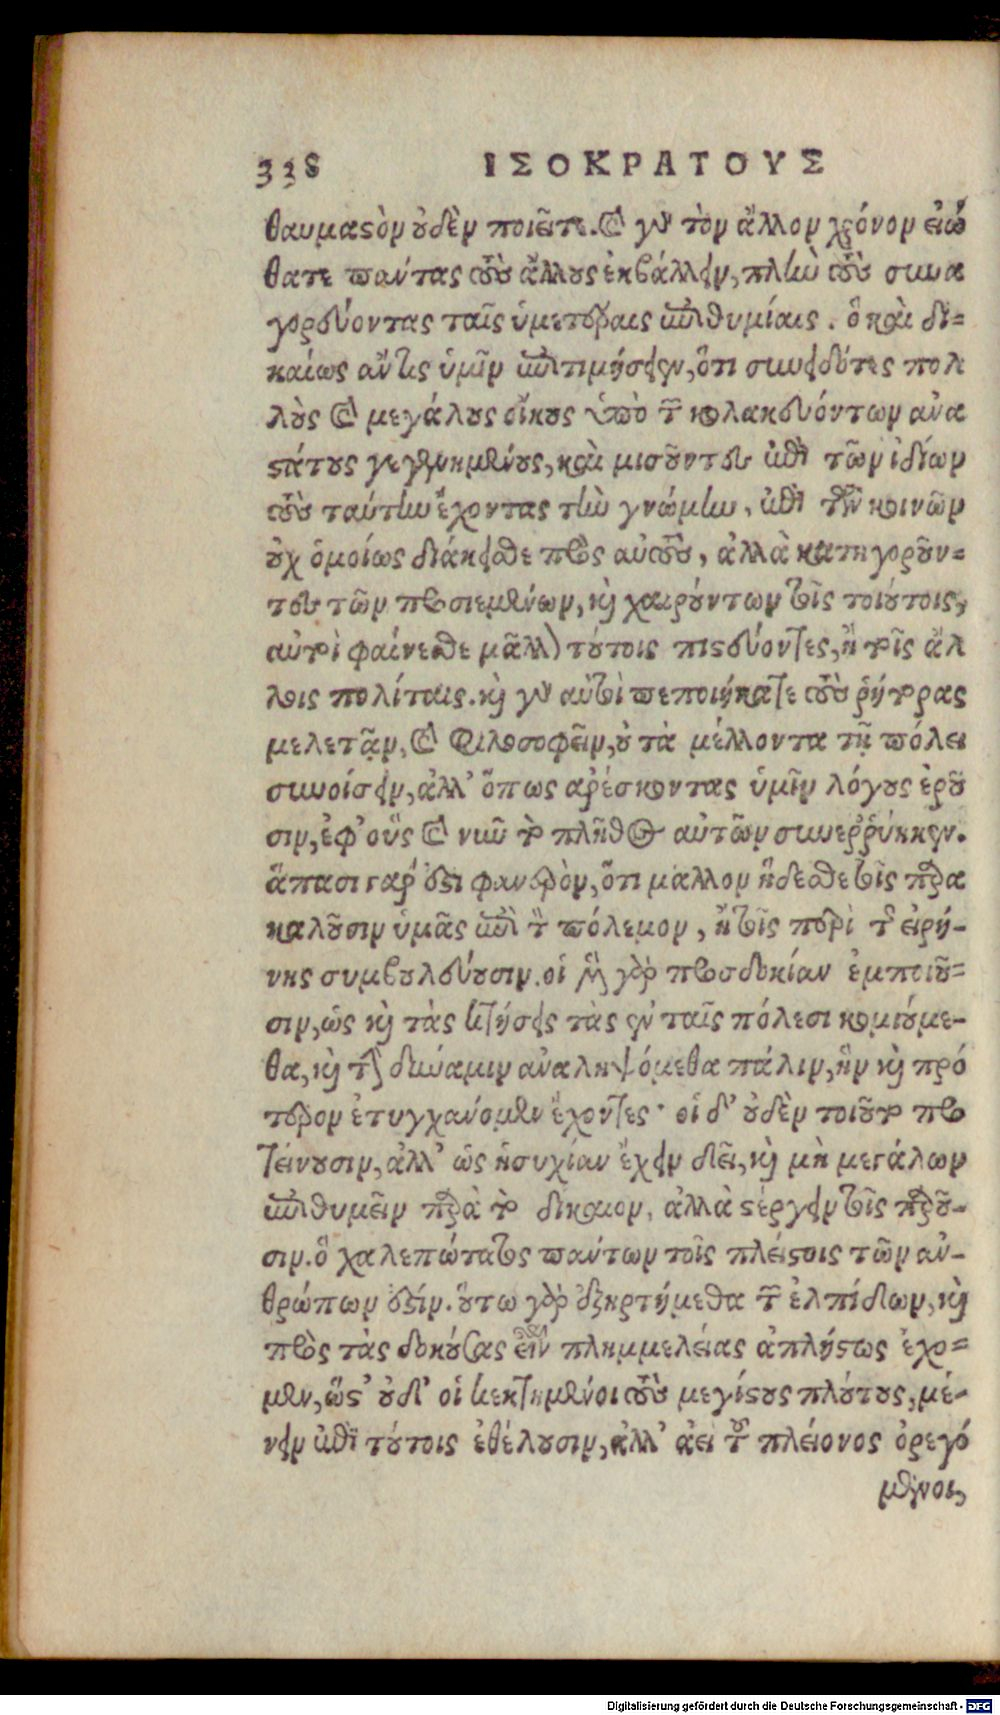 338 ΙΣΟΚΡΑΤΟΥΣ
θαυμαστὸν οὐδὲν ποιεῖτε. καὶ γὰρ τὸν ἄλλον χρόνον εἰώ
θατε πάντας τοὺς ἄλλους ἐκβάλλειν, πλὴν τοὺς συνα
γορεύοντας ταῖς ὑμετέραις ἐπιθυμίαις. ὃ καὶ δι-
καίως ἄν τις ὑμῖν ἐπιτιμήσειεν, ὅτι συνειδότες πολ
λοὺς καὶ μεγάλους οἴκους ὑπὸ τῶν κολακευόντων ἀνα
στάτους γεγενημένους, καὶ μισοῦντες ἐπὶ τῶν ἰδίων
τοὺς ταύτην ἔχοντας τὴν γνώμην, ἐπὶ τῶν κοινῶν
οὐχ ὁμοίως διάκεισθε πρὸς αὐτοὺς, ἀλλὰ κατηγοροῦν-
τες τῶν προσιεμένων, καὶ χαιρόντων τοῖς τοιούτοις,
αὐτοὶ φαίνεσθε μᾶλλον τούτοις πιστεύοντες, ἢ τοῖς ἄλ
λοις πολίταις. καὶ γὰρ αὐτοὶ πεποιήκατε τοὺς ῥήτορας
μελετᾷν, καὶ φιλοσοφεῖν, οὐ τὰ μέλλοντα τῇ πόλει
συνοίσειν, ἀλλ' ὅπως ἀρέσκοντας ὑμῖν λόγους ἐροῦ
σιν, ἐφ' οὓς καὶ νῦν τὸ πλῆθος αὐτῶν συνεῤῥύηκεν.
ἅπασι γάρ ἐστι φανερὸν, ὅτι μᾶλλον ἥδεσθε τοῖς παρα
καλοῦσιν ὑμᾶς ἐπὶ τὸν πόλεμον, ἢ τοῖς περὶ τῆς εἰρή-
νης συμβουλεύουσιν. οἱ μὲν γὰρ προσδοκίαν ἐμποιοῦ-
σιν, ὡς καὶ τὰς κτήσεις τὰς ἐν ταῖς πόλεσι κομιούμε-
θα, καὶ τὴν δύναμιν ἀναληψόμεθα πάλιν, ἣν καὶ πρό
τερον ἐτυγχάνομεν ἔχοντες· οἱ δ' οὐδὲν τοιοῦτο προ
τείνουσιν, ἀλλ' ὡς ἡσυχίαν ἔχειν δεῖ, καὶ μὴ μεγάλων
ἐπιθυμεῖν παρὰ τὸ δίκαιον, ἀλλὰ στέργειν τοῖς παροῦ-
σιν. ὃ χαλεπώτατος πάντων τοῖς πλείστοις τῶν ἀν-
θρώπων ἐστίν. οὕτω γὰρ ἐξηρτήμεθα τῶν ἐλπίδων, καὶ
πρὸς τὰς δοκούσας εἶναι πλημμελείας ἀπλήστως ἔχο-
μεν, ὥστ' οὐδ' οἱ κεκτημένοι τοὺς μεγίστους πλούτους, μέ-
νειν ἐπὶ τούτοις ἐθέλουσιν, ἀλλ' ἀεὶ τοῦ πλείονος ὀρεγό
μενοι,
Digitalisierung gefördert durch die Deutsche Forschungsgemeinschaft - DFG